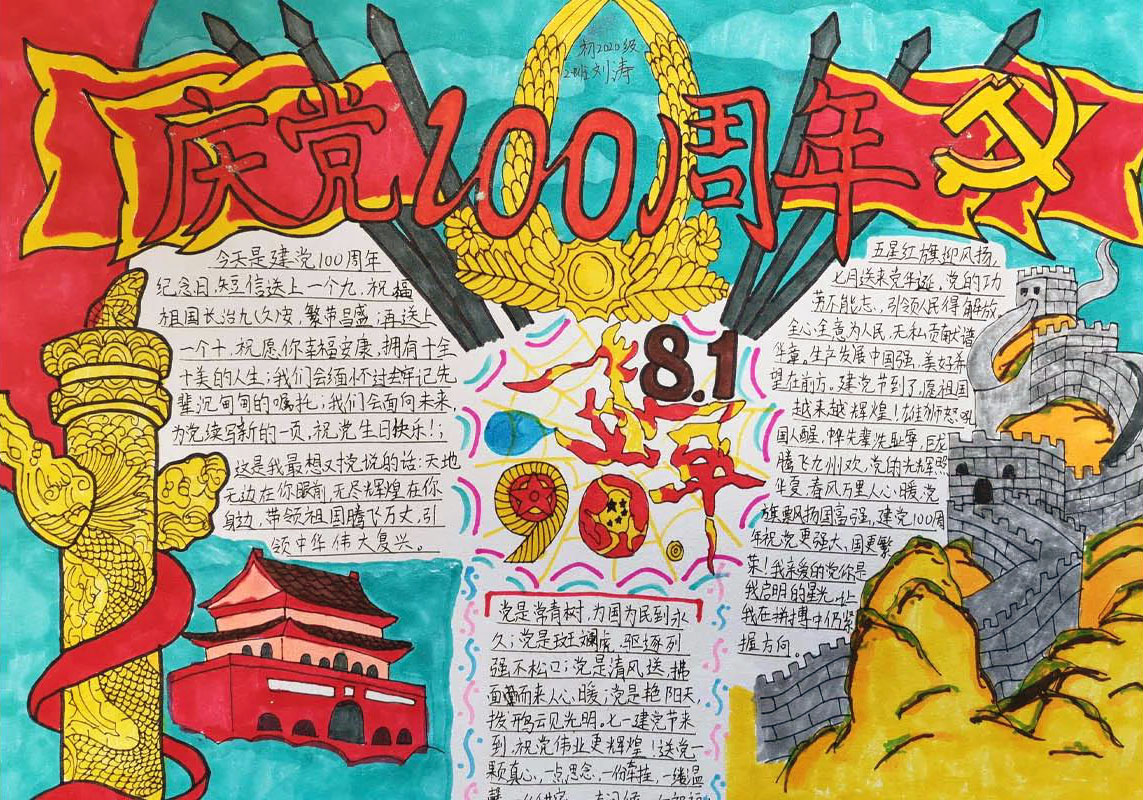 初2020级
2班刘涛
庆党100周年
今天是建党100周年
纪念日,短信送上一个九,祝福
祖国长治九久安,繁荣昌盛;再送上
一个十,祝愿你幸福安康,拥有十全
十美的人生;我们会缅怀过去牢记先
辈沉甸甸的嘱托;我们会面向未来,
为党续写新的一页,祝党生日快乐!;
这是我最想对党说的话:天地
无边在你眼前,无尽辉煌在你
身边,带领祖国腾飞万丈,引
领中华伟大复兴。
8.1
建军
90
党是常青树,为国为民到永
久;党是斑斓虎,驱逐列
强不松口;党是清风送,拂
面而来人心暖;党是艳阳天,
拨鸦云见光明,七一建党节来
到,祝党伟业更辉煌!送党一
颗真心,一点思念,一份牵挂,一缕温
五星红旗迎风扬,
七月送来党华诞,党的功
劳不能忘,引领人民得解放,
全心全意为人民,无私贡献谱
华章。生产发展中国强,美好希
望在前方。建党节到了,愿祖国
越来越辉煌!雄狮怒吼
国人醒,革先辈洗耻辱,巨龙
腾飞九州欢,党的光辉照
华夏,春风万里人心暖,党
旗飘扬国富强,建党100周
年祝党更强大,国更繁
荣!我亲爱的党你是
我启明的星光,让
我在拼搏中仍紧
握方向.